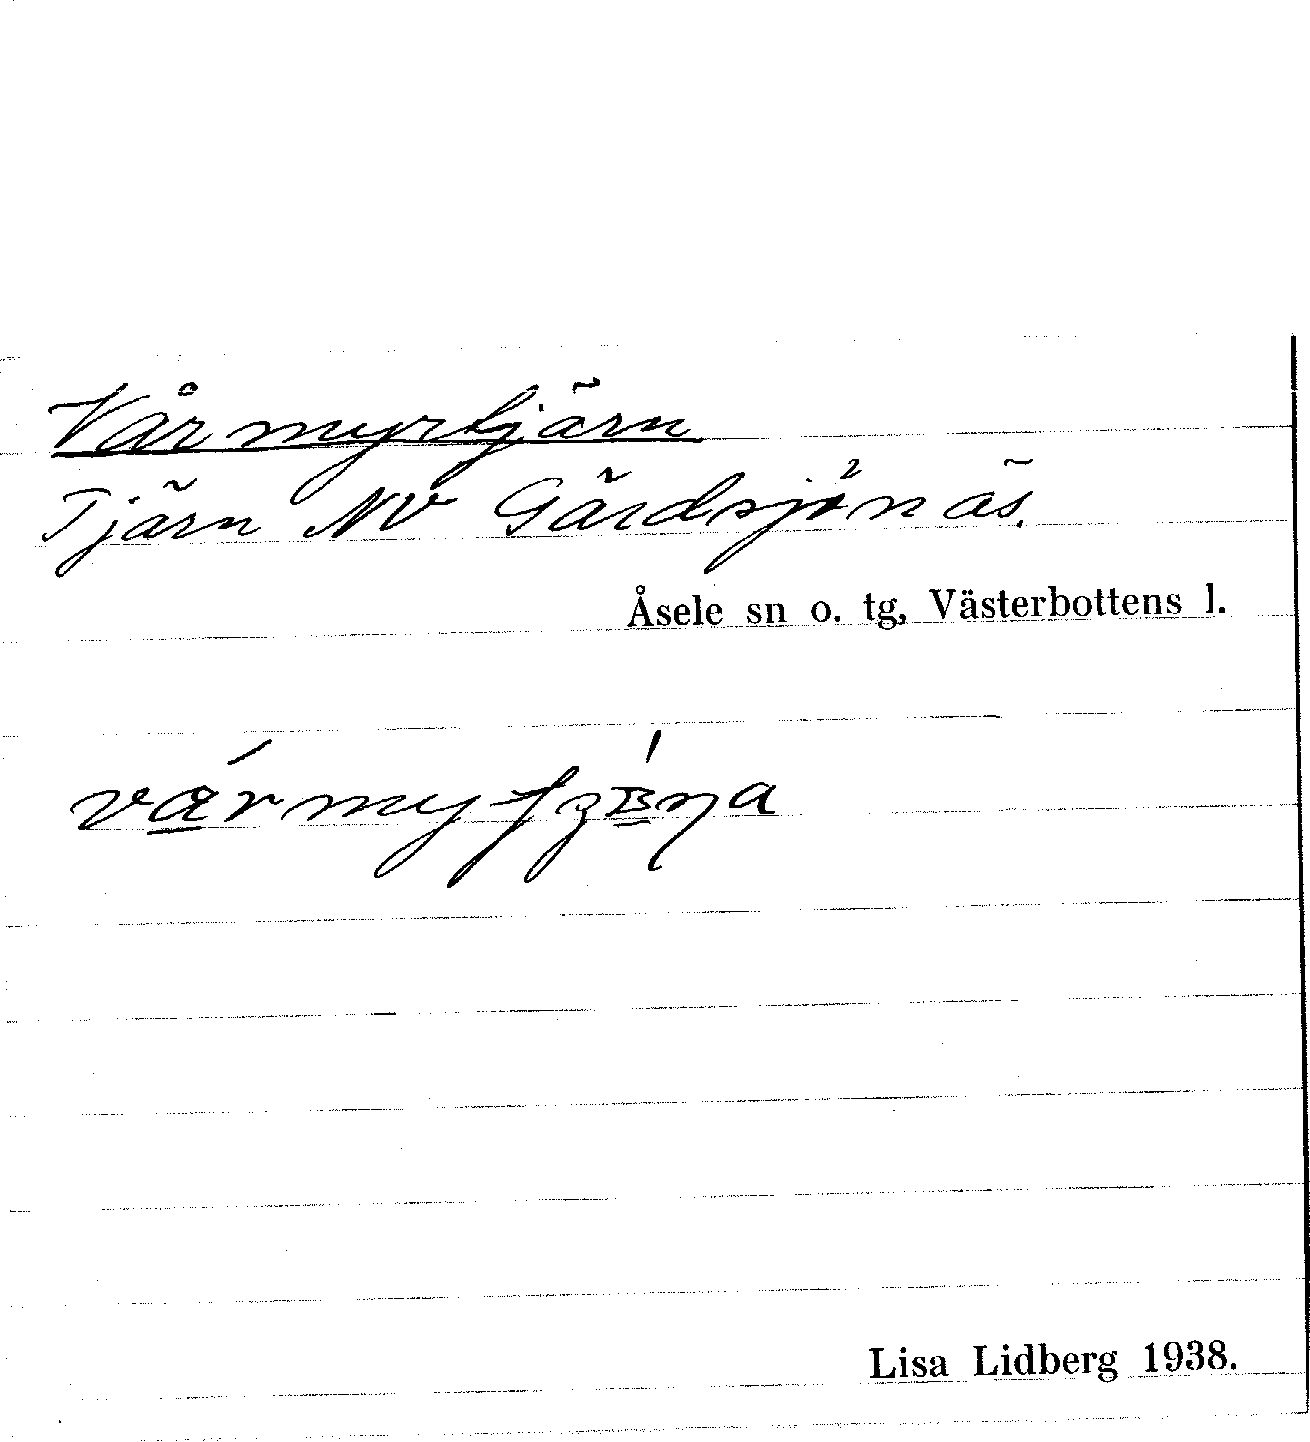 Vårmyrtjärn
Tjärn NV Gärdsjönäs.
Åsele sn o. tg, Västerbottens l.
Lisa Lidberg 1938.